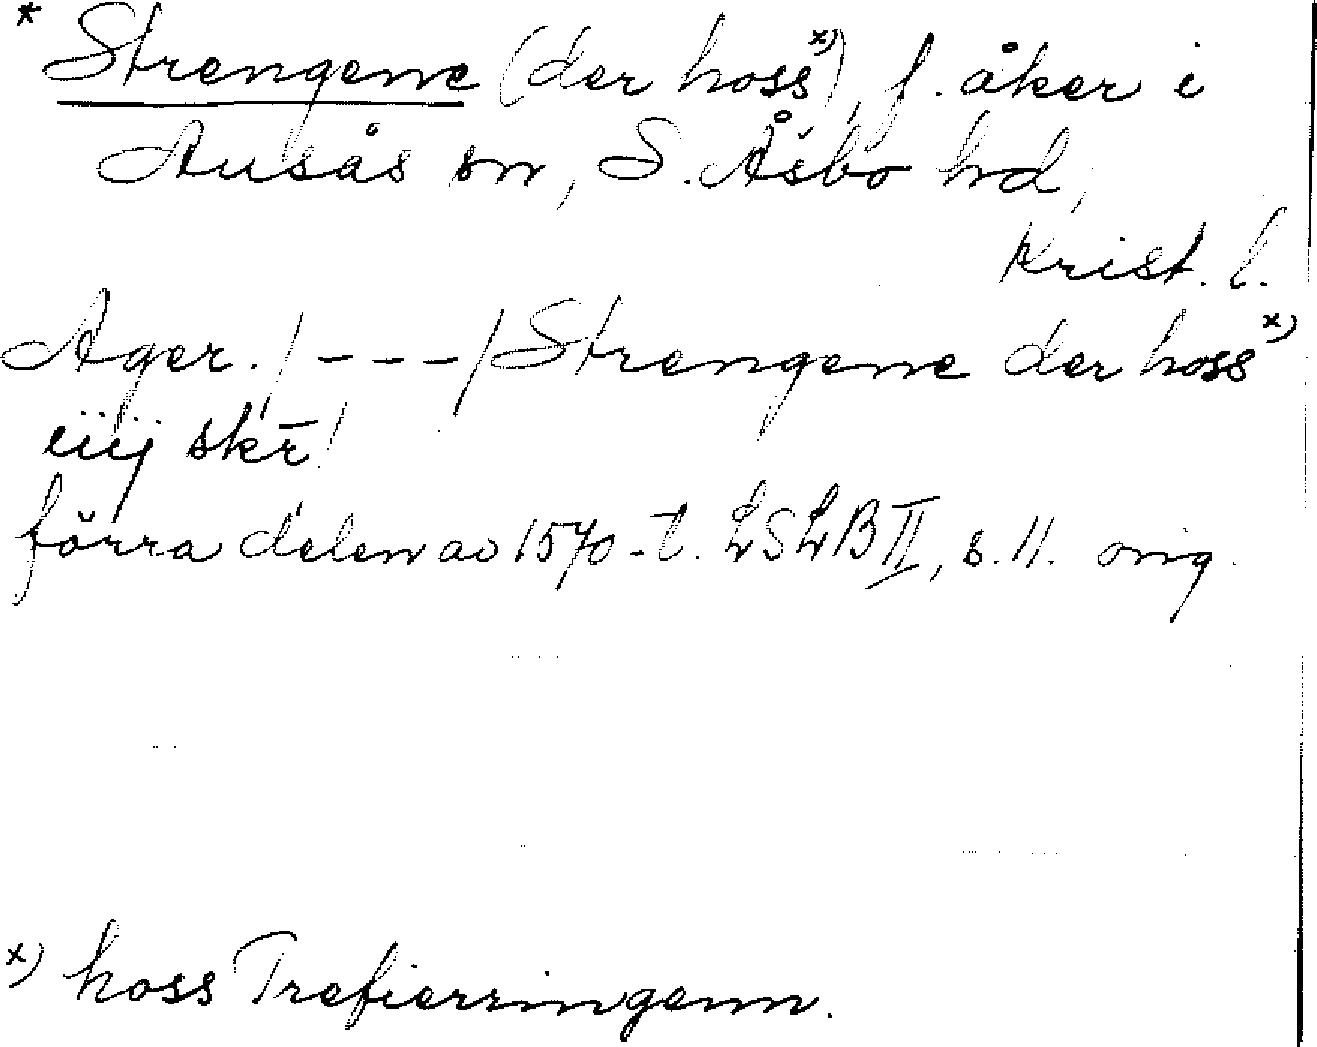 * Strengene (der hoss x)), f. åker i
Ausås sn, S. Åsbo hd,
Krist. l.
Ager. / - - - / Strengene der hoss x)
iiij skr̄
förra delen av 1570-t. LSLB II, s. 11. orig.
x) hoss Trefierringenn.